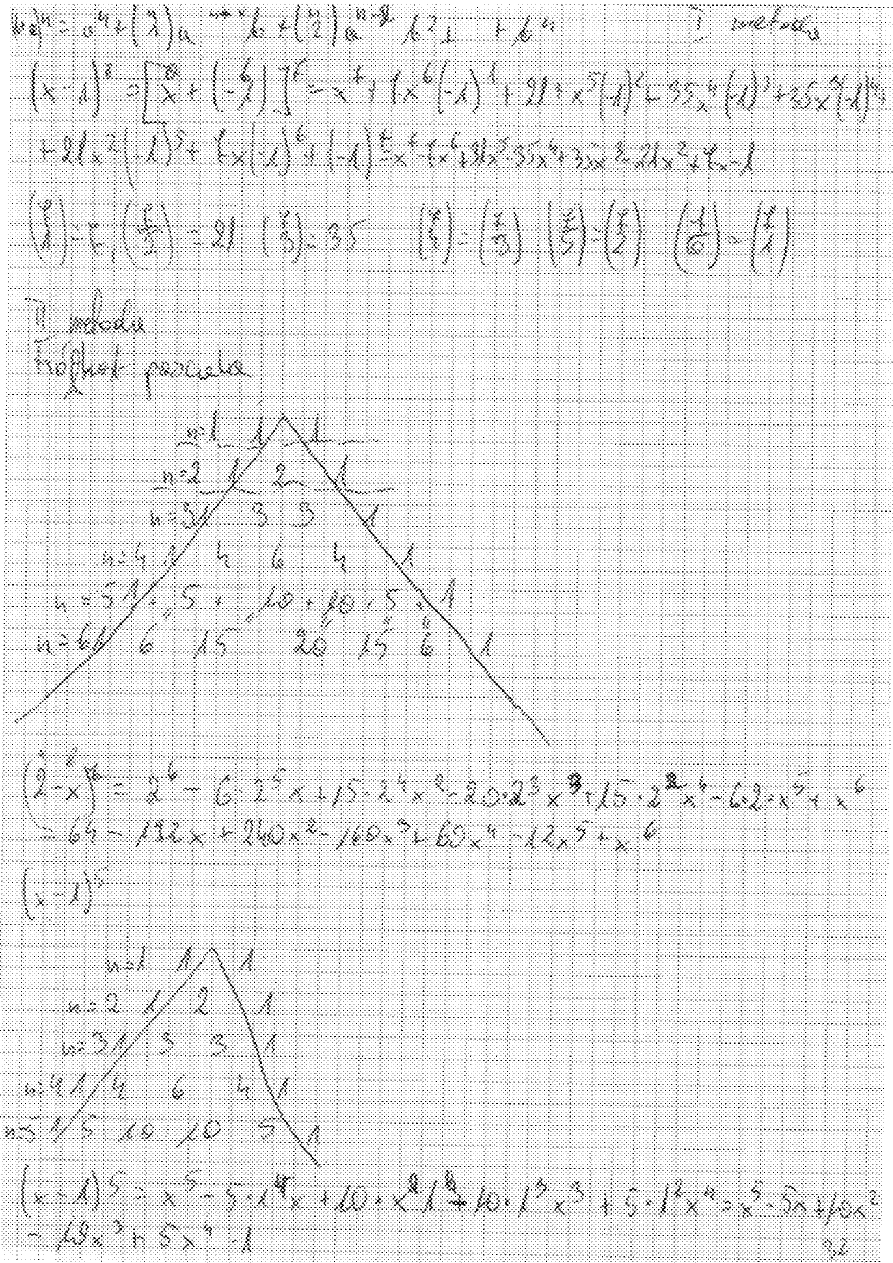 (x-1)⁷ = [x + (-1)]⁷ = x⁷ + 7x⁶(-1)¹ + 21x⁵(-1)² + 35x⁴(-1)³ + 35x³(-1)⁴ +
+ 21x²(-1)⁵ + 7x(-1)⁶ + (-1)⁷ = x⁷ - 7x⁶ + 21x⁵ - 35x⁴ + 35x³ - 21x² + 7x - 1
(7 1) = 7, (7 2) = 21 (7 3) = 35 (7 4) = (7 3) (7 5) = (7 2) (7 6) = (7 1)
II metoda
n=1 1 1
n=2 1 2 1
n=3 1 3 3 1
n=4 1 4 6 4 1
n=5 1 + 5 + 10 + 10 + 5 + 1
n=6 1 6 15 20 15 6 1
(2-x)⁶ = 2⁶ - 6·2⁵x + 15·2⁴x² - 20·2³x³ + 15·2²x⁴ - 6·2·x⁵ + x⁶
= 64 - 192x + 240x² - 160x³ + 60x⁴ - 12x⁵ + x⁶
(x-1)⁵
n=1 1 1
n=2 1 2 1
n=3 1 3 3 1
n=4 1 4 6 4 1
n=5 1 5 10 10 5 1
(x-1)⁵ = x⁵ - 5·1⁴x + 10·x²1³ - 10·1³x³ + 5·1²x⁴ = x⁵ - 5x + 10x²
- 10x³ + 5x⁴ - 1
32